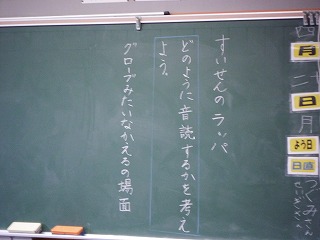 四
月
二十
日
月
よう日
日直
つくみ
すいせんの ラッパ
どのように音読するかを考え
よう。
グローブみたいなかえるの場面